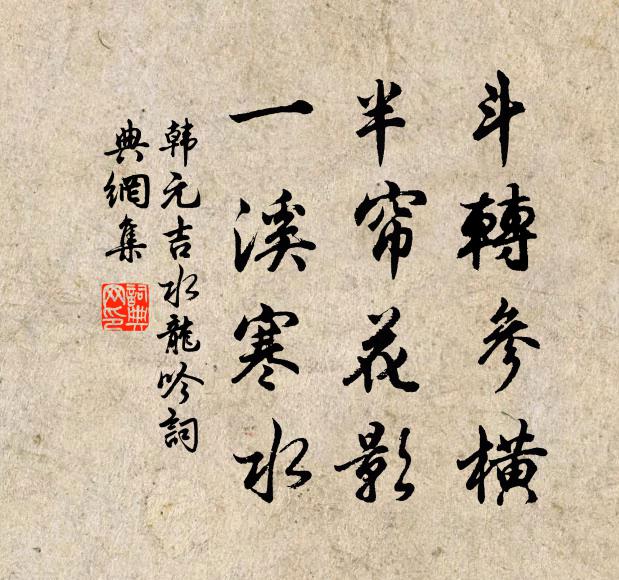 斗轉參橫
半帘花影
一溪寒水
韩元吉水龍吟詞
典網集
詞典網印